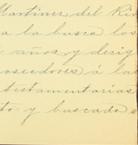 Martinez del Ri
a la busca los
años y desig
oseedores) á las
testamentarias
to y buscada